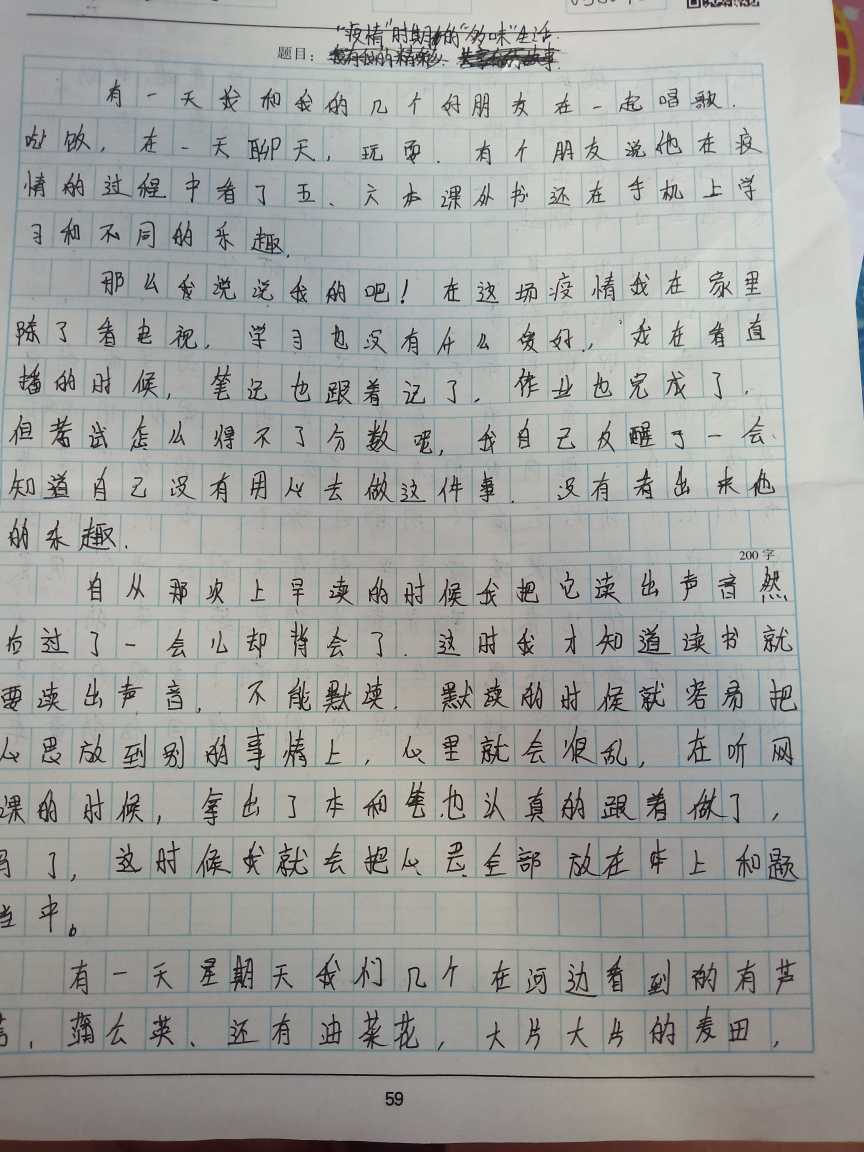 "疫情"时期的"多味"生活.
题目：
有一天我和我的几个好朋友在一起唱歌.
吃饭，在一天聊天，玩耍.有个朋友说他在疫
情的过程中看了五、六本课外书还在手机上学
习和不同的乐趣.
那么我说说我的吧！在这场疫情我在家里
除了看电视，学习也没有什么爱好，我在看直
播的时候，笔记也跟着记了，作业也完成了，
但考试怎么得不了分数呢，我自己反醒了一会
知道自己没有用心去做这件事.没有看出来他
的乐趣.
200字
自从那次上早读的时候我把它读出声音然
后过了一会儿却背会了.这时我才知道读书就
要读出声音，不能默读.默读的时候就容易把
心思放到别的事情上，心里就会很乱，在听网
课的时候，拿出了本和笔也认真的跟着做了，
写了，这时候我就会把心思全部放在本上和题
当中。
有一天星期天我们几个在河边看到的有芦
苇、蒲公英、还有油菜花，大片大片的麦田，
59